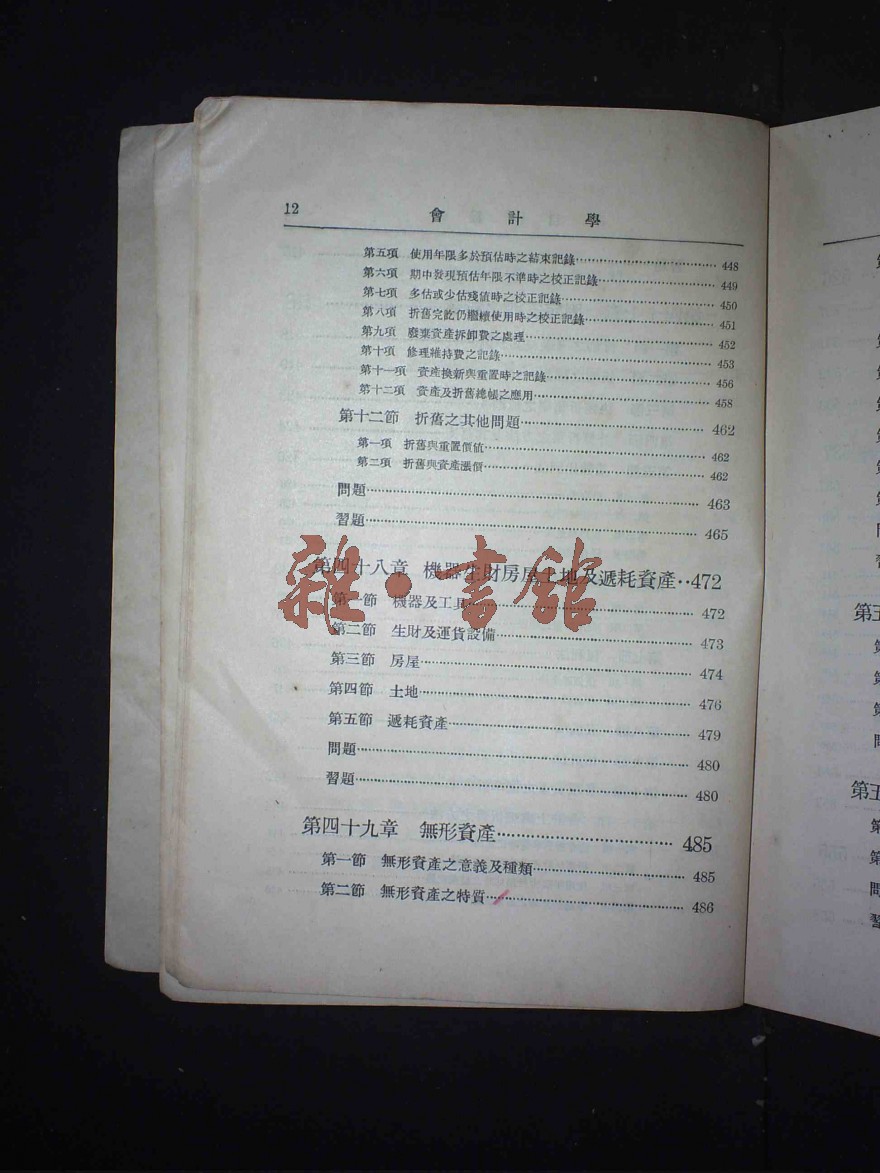 12 會計學
第五項 使用年限多於預估時之結束記錄 448
第六項 期中發現預估年限不準時之校正記錄 449
第七項 多估或少估殘值時之校正記錄 450
第八項 折舊完訖仍繼續使用時之校正記錄 451
第九項 廢棄資產拆卸費之處理 452
第十項 修理維持費之記錄 453
第十一項 資產換新與重置時之記錄 456
第十二項 資產及折舊總帳之應用 458
第十二節 折舊之其他問題 462
第一項 折舊與重置價值 462
第二項 折舊與資產漲價 462
問題 463
習題 465
雜·書館
第四十八章 機器生財房屋土地及遞耗資產 472
第一節 機器及工具 472
第二節 生財及運貨設備 473
第三節 房屋 474
第四節 土地 476
第五節 遞耗資產 479
問題 480
習題 480
第四十九章 無形資產 485
第一節 無形資產之意義及種類 485
第二節 無形資產之特質 486